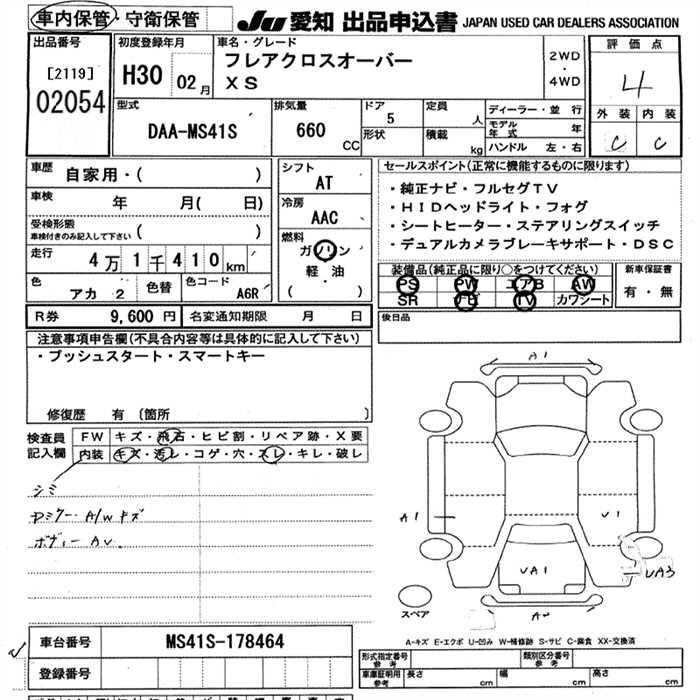 車内保管・守衛保管
JU 愛知 出品申込書 JAPAN USED CAR DEALERS ASSOCIATION
出品番号
[2119]
02054
初度登録年月
H30 02月
車名・グレード
フレアクロスオーバー
XS
2WD
・
4WD
評価点
4
外装 内装
C C
型式
DAA-MS41S
排気量
660 CC
ドア
5
形状
定員
人
積載
kg
ディーラー・並行
モデル年式 年
ハンドル 左・右
車歴
自家用・( )
車検
年 月( 日)
受検形態
車検付きのみ記入して下さい ( )
走行
4万1千410km
色
アカ 2
色替
色コード
A6R
シフト
AT
冷房
AAC
燃料
ガソリン
軽・油
( )
セールスポイント(正常に機能するものに限ります)
・純正ナビ・フルセグTV
・HIDヘッドライト・フォグ
・シートヒーター・ステアリングスイッチ
・デュアルカメラブレーキサポート・DSC
装備品(純正品に限り○をつけてください)
PS PW エアB AW
SR ナビ TV カワシート
新車保証書
有・無
R券 9,600円 名変通知期限 月 日
後日品
注意事項申告欄(不具合内容等は具体的に記入して下さい)
・プッシュスタート・スマートキー
修復歴 有 (箇所 )
検査員
記入欄
FW キズ・飛石・ヒビ割・リペア跡・X要
内装 キズ・汚レ・コゲ・穴・スレ・キレ・破レ
シミ
Dミラー A/Wキズ
ボディー AU.
A1
A1
U1
UA1
UA3
スペア
A-キズ E-エクボ U-凹み W-補修跡 S-サビ C-腐食 XX-交換済
車台番号 MS41S-178464
登録番号
形式指定番号
参考
類別区分番号
参考
車庫証明用
参考
長さ cm 幅 cm 高さ cm